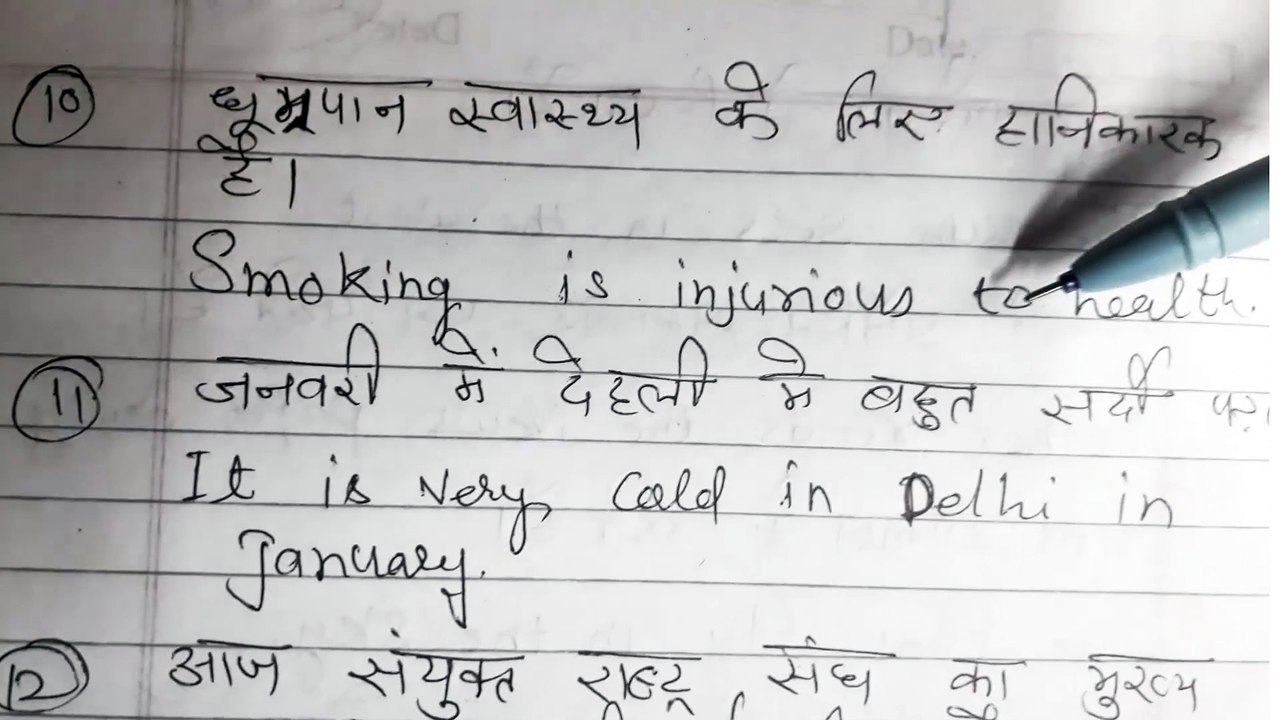 10 धूम्रपान स्वास्थ्य के लिए हानिकारक
है।
Smoking is injurious to health.
11 जनवरी में देहली मे बहुत सर्दी
It is very Cold in Delhi in
January.
12 आज संयुक्त राष्ट्र संघ का मुख्य